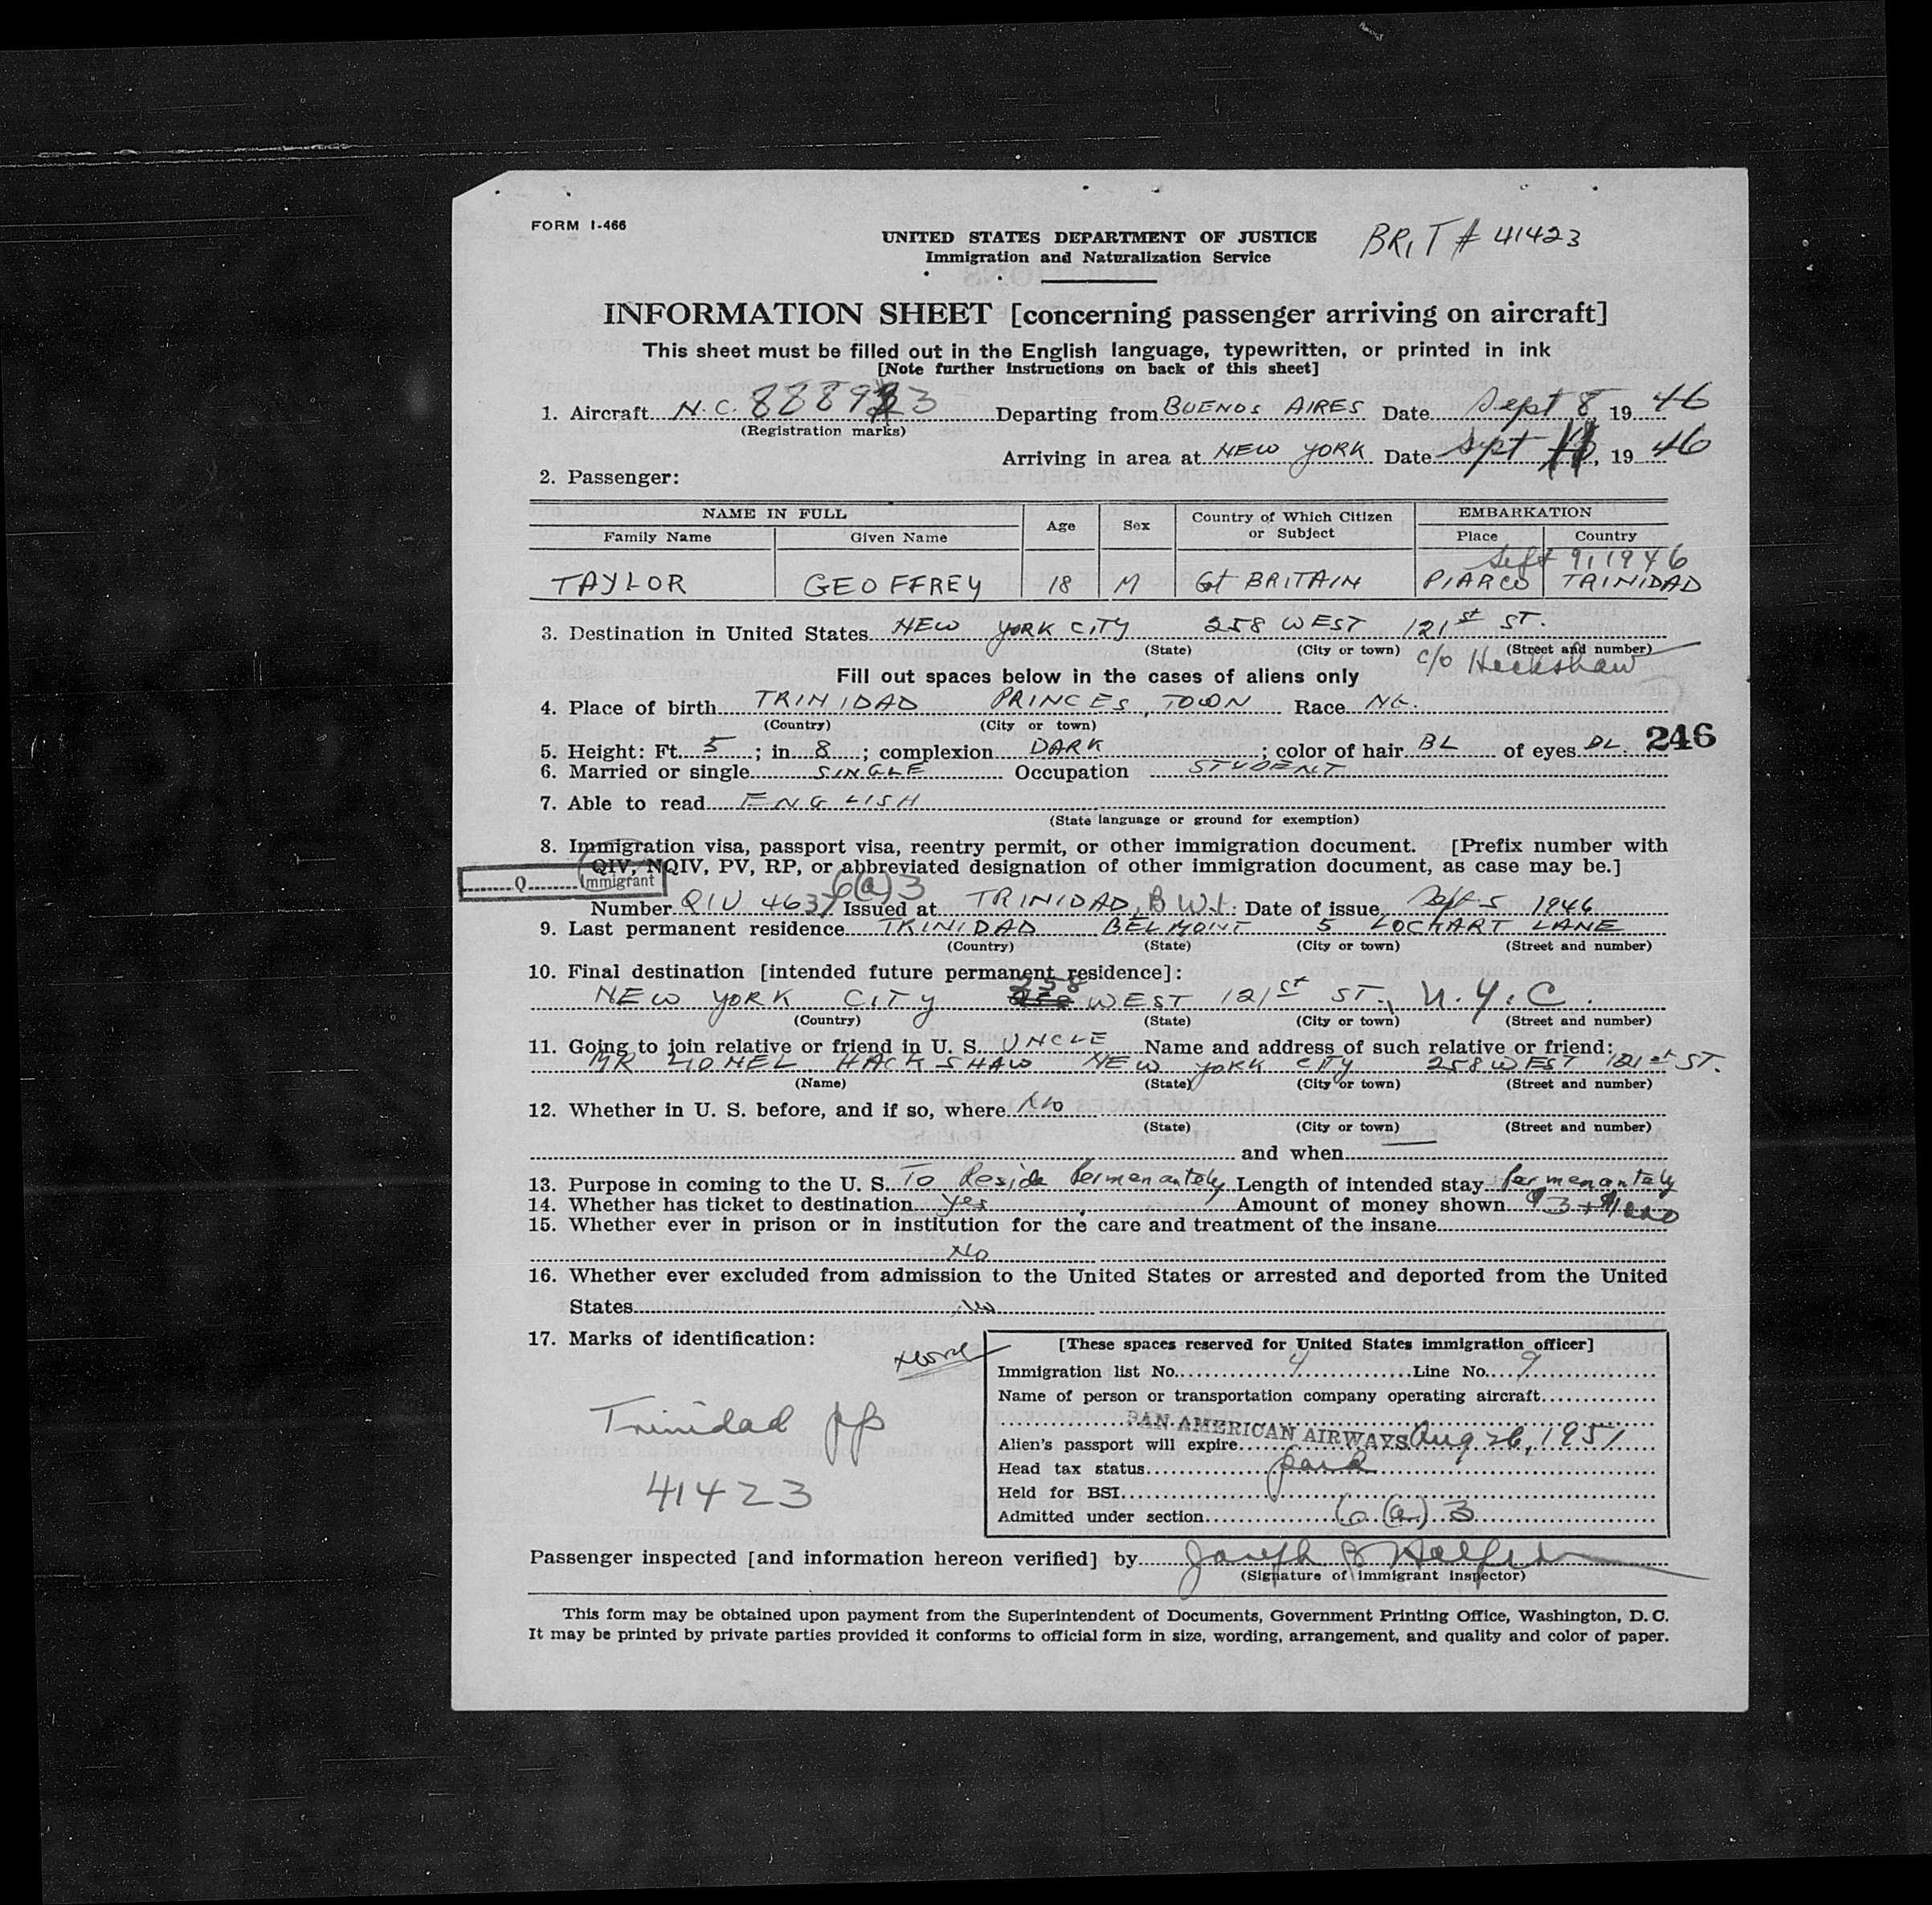 FORM I-466
UNITED STATES DEPARTMENT OF JUSTICE
Immigration and Naturalization Service
BRIT # 41423
INFORMATION SHEET [concerning passenger arriving on aircraft]
This sheet must be filled out in the English language, typewritten, or printed in ink
[Note further instructions on back of this sheet]
1. Aircraft N.C. Departing from BUENOS AIRES Date Sept 8, 19 46
(Registration marks)
Arriving in area at NEW YORK Date Sept, 19 46
2. Passenger:
NAME IN FULL Age Sex Country of Which Citizen or Subject EMBARKATION
Family Name Given Name Place Country
Sept 9, 1946
TAYLOR GEOFFREY 18 M Gt BRITAIN PIARCO TRINIDAD
3. Destination in United States NEW YORK CITY 258 WEST 121st ST.
(State) (City or town) (Street and number)
c/o Heckshaw
Fill out spaces below in the cases of aliens only
4. Place of birth TRINIDAD PRINCES TOWN Race
(Country) (City or town)
5. Height: Ft. 5; in 8; complexion DARK; color of hair BL of eyes
246
6. Married or single SINGLE Occupation STUDENT
7. Able to read ENGLISH
(State language or ground for exemption)
8. Immigration visa, passport visa, reentry permit, or other immigration document. [Prefix number with
QIV, NQIV, PV, RP, or abbreviated designation of other immigration document, as case may be.]
Q Immigrant
6(a)3
Number QIV 4637 Issued at TRINIDAD, B.W.I. Date of issue Sept 5 1946
9. Last permanent residence TRINIDAD BELMONT 5 LOCKART LANE
(Country) (State) (City or town) (Street and number)
10. Final destination [intended future permanent residence]:
NEW YORK CITY 258 WEST 121st ST., N.Y.C.
(Country) (State) (City or town) (Street and number)
11. Going to join relative or friend in U. S. UNCLE Name and address of such relative or friend:
MR LIONEL HACKSHAW NEW YORK CITY 258 WEST 121st ST.
(Name) (State) (City or town) (Street and number)
12. Whether in U. S. before, and if so, where No
(State) (City or town) (Street and number)
and when
13. Purpose in coming to the U. S. To Reside Permenantely Length of intended stay Permenantely
14. Whether has ticket to destination yes Amount of money shown
15. Whether ever in prison or in institution for the care and treatment of the insane
No
16. Whether ever excluded from admission to the United States or arrested and deported from the United
States No
17. Marks of identification:
None
Trinidad pp
41423
[These spaces reserved for United States immigration officer]
Immigration list No. 4 Line No. 9
Name of person or transportation company operating aircraft
PAN AMERICAN AIRWAYS
Alien's passport will expire Aug 26, 1951
Head tax status paid
Held for BSI
Admitted under section 6(a)3
Passenger inspected [and information hereon verified] by Joseph B
(Signature of immigrant inspector)
This form may be obtained upon payment from the Superintendent of Documents, Government Printing Office, Washington, D. C.
It may be printed by private parties provided it conforms to official form in size, wording, arrangement, and quality and color of paper.